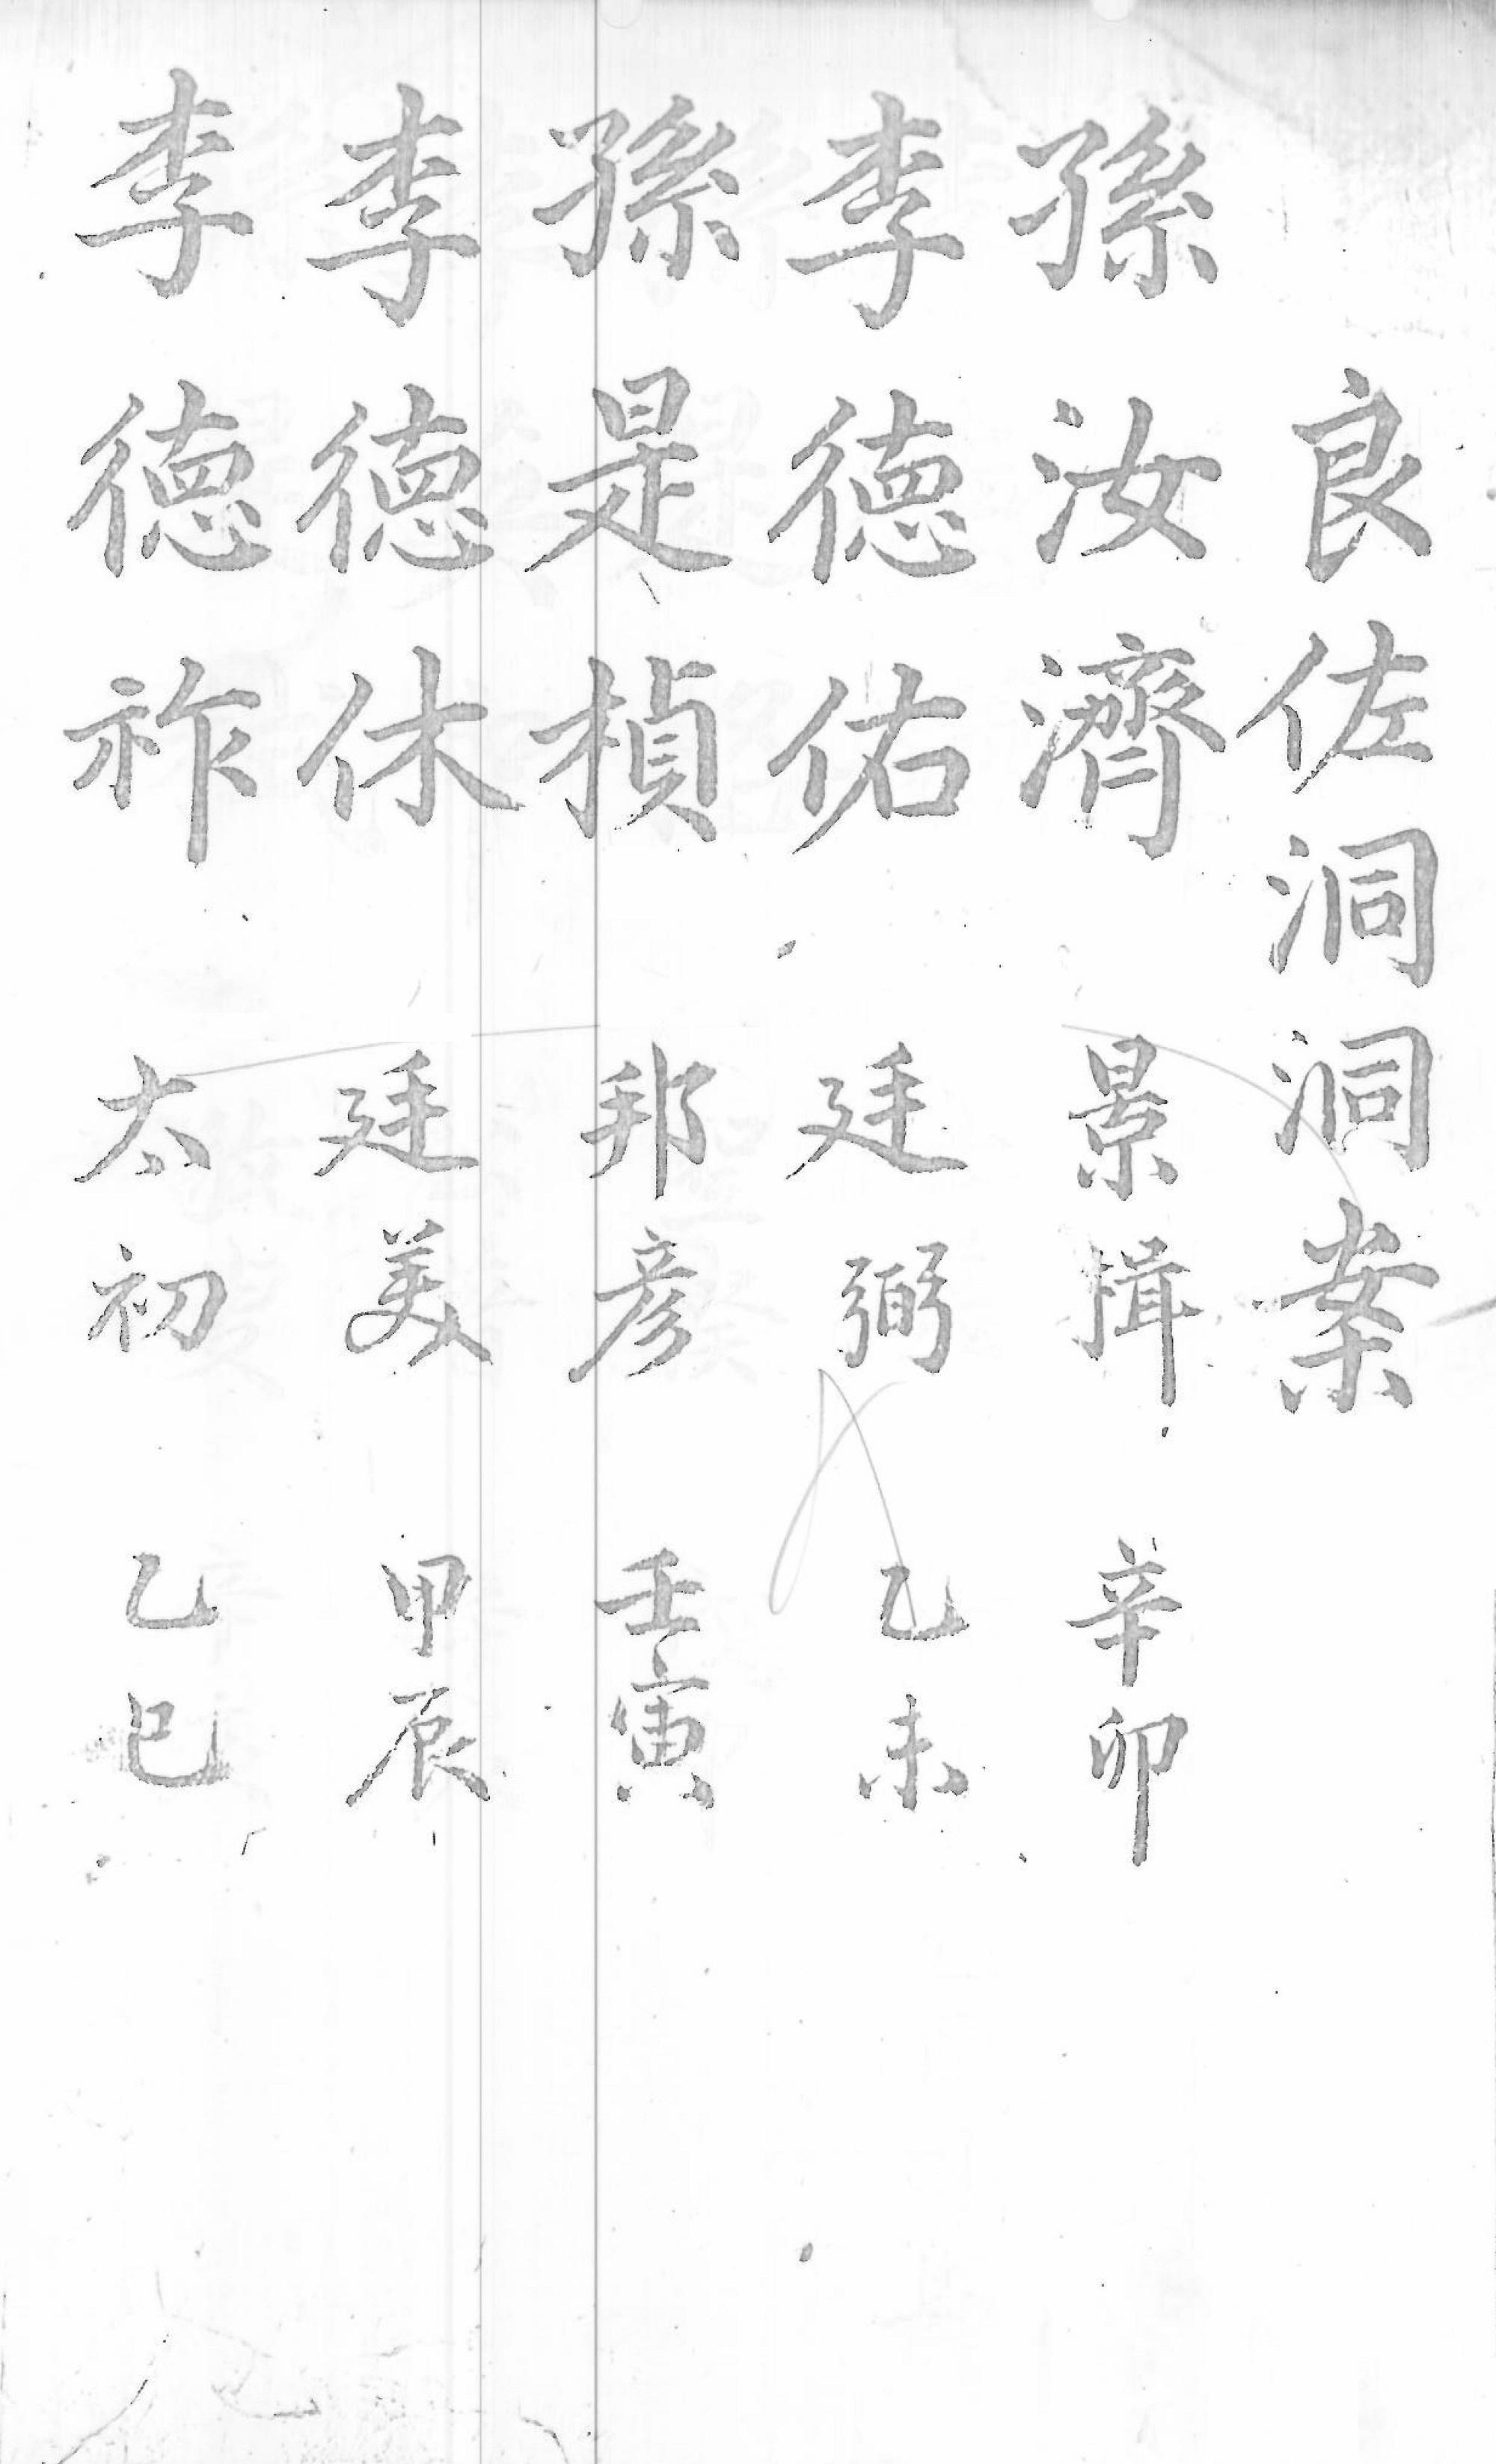 良佐洞洞案
孫汝濟 景揖 辛卯
李德佑 廷弼 乙未
孫是楨 邦彦 壬寅
李德休 廷美 甲辰
李德祚 太初 乙巳